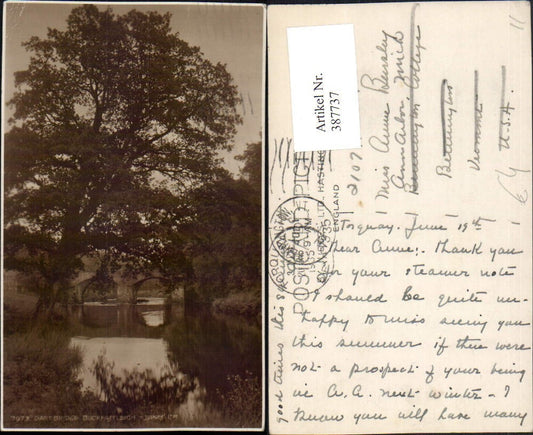 7973 DART BRIDGE BUCKFASTLEIGH
Artikel Nr.
387737
Miss Anne Beasley
Ann Arbor Mich
Bennington College
Bennington
Vermont
U.S.A.
LTD., HASTINGS
ENGLAND
2107
1935
Torquay. June 19th
Dear Anne:- Thank you
for your steamer note
I should be quite un-
happy to miss seeing you
this summer if there were
not a prospect of your being
in A.A. next winter. I
know you will have many
good times this